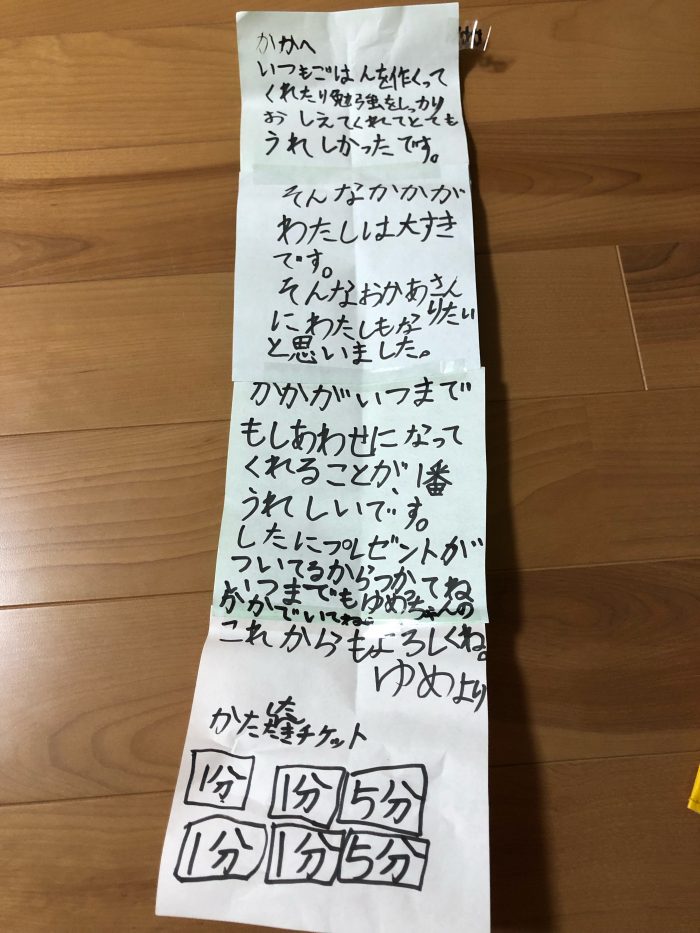 かかへ
いつもごはんを作くって
くれたり勉強をしっかり
おしえてくれてとても
うれしかったです。
そんなかかが
わたしは大すき
です。
そんなおかあさん
にわたしもなりたい
と思いました。
かかがいつまで
もしあわせになって
くれることが、1番
うれしいです。
したにプレゼントが
ついてるからつかてね
いつまでもゆめちゃんの
かかでいてね
これからもよろしくね。
ゆめより
かたたたきチケット
1分 1分 5分
1分 1分 5分